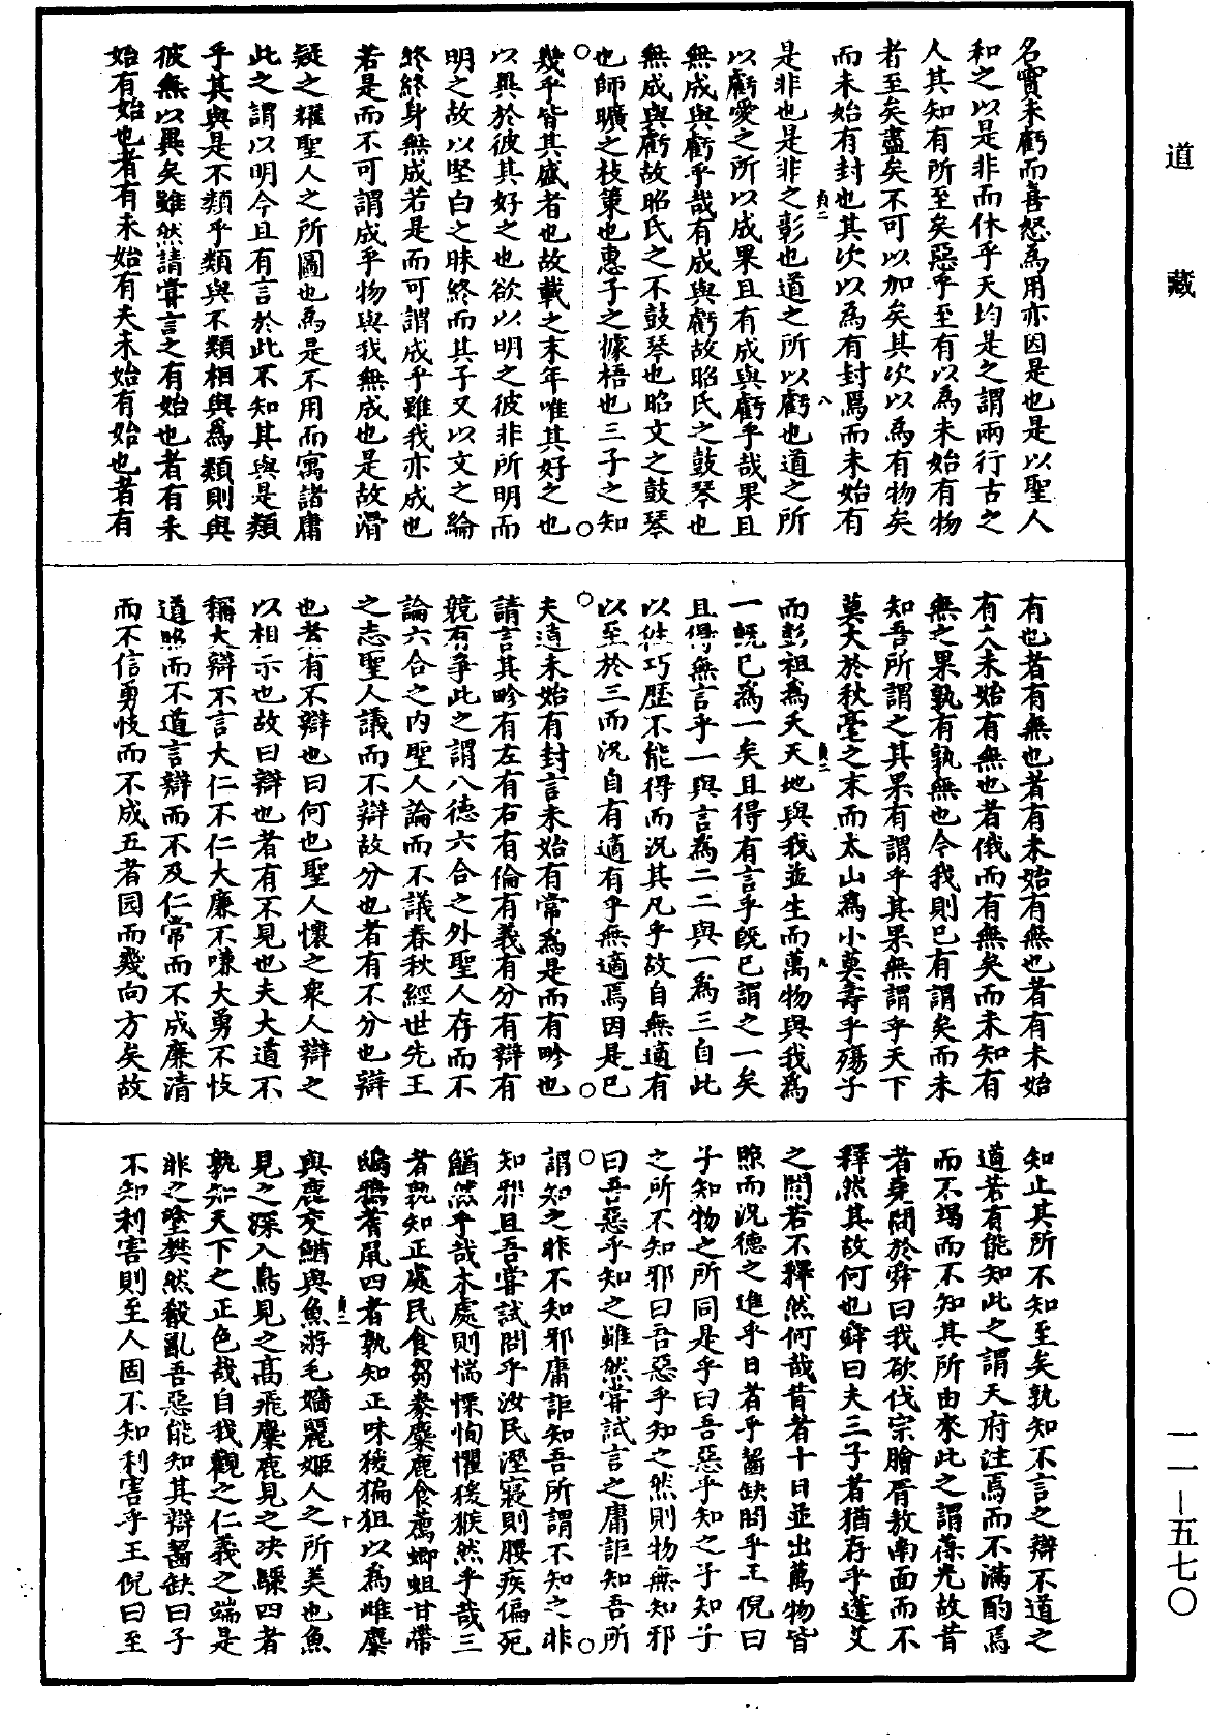 道藏
名實未虧而喜怒為用亦因是也是以聖人
和之以是非而休乎天均是之謂兩行古之
人其知有所至矣惡乎至有以為未始有物
者至矣盡矣不可以加矣其次以為有物矣
而未始有封也其次以為有封焉而未始有
是非也是非之彰也道之所以虧也道之所
以虧愛之所以成果且有成與虧乎哉果且
無成與虧乎哉有成與虧故昭氏之鼓琴也
無成與虧故昭氏之不鼓琴也昭文之鼓琴
也師曠之枝策也惠子之據梧也三子之知
幾乎皆其盛者也故載之末年唯其好之也
以異於彼其好之也欲以明之彼非所明而
明之故以堅白之昧終而其子又以文之綸
終終身無成若是而可謂成乎雖我亦成也
若是而不可謂成乎物與我無成也是故滑
疑之耀聖人之所圖也為是不用而寓諸庸
此之謂以明今且有言於此不知其與是類
乎其與是不類乎類與不類相與為類則與
彼無以異矣雖然請嘗言之有始也者有未
始有始也者有未始有夫未始有始也者有
有也者有無也者有未始有無也者有未始
有夫未始有無也者俄而有無矣而未知有
無之果孰有孰無也今我則已有謂矣而未
知吾所謂之其果有謂乎其果無謂乎天下
莫大於秋毫之末而太山為小莫壽乎殤子
而彭祖為夭天地與我並生而萬物與我為
一既已為一矣且得有言乎既已謂之一矣
且得無言乎一與言為二二與一為三自此
以往巧歷不能得而況其凡乎故自無適有
以至於三而況自有適有乎無適焉因是已
夫道未始有封言未始有常為是而有畛也
請言其畛有左有右有倫有義有分有辯有
競有爭此之謂八德六合之外聖人存而不
論六合之內聖人論而不議春秋經世先王
之志聖人議而不辯故分也者有不分也辯
也者有不辯也曰何也聖人懷之衆人辯之
以相示也故曰辯也者有不見也夫大道不
稱大辯不言大仁不仁大廉不嗛大勇不忮
道昭而不道言辯而不及仁常而不成廉清
而不信勇忮而不成五者园而幾向方矣故
知止其所不知至矣孰知不言之辯不道之
道若有能知此之謂天府注焉而不滿酌焉
而不竭而不知其所由來此之謂葆光故昔
者堯問於舜曰我欲伐宗膾胥敖南面而不
釋然其故何也舜曰夫三子者猶存乎蓬艾
之間若不釋然何哉昔者十日並出萬物皆
照而況德之進乎日者乎齧缺問乎王倪曰
子知物之所同是乎曰吾惡乎知之子知子
之所不知邪曰吾惡乎知之然則物無知邪
曰吾惡乎知之雖然嘗試言之庸詎知吾所
謂知之非不知邪庸詎知吾所謂不知之非
知邪且吾嘗試問乎汝民溼寢則腰疾偏死
鰌然乎哉木處則惴慄恂懼猨猴然乎哉三
者孰知正處民食芻豢麋鹿食薦蝍蛆甘帶
鴟鴉耆鼠四者孰知正味猨猵狙以為雌麋
與鹿交鰌與魚游毛嬙麗姬人之所美也魚
見之深入鳥見之高飛麋鹿見之決驟四者
孰知天下之正色哉自我觀之仁義之端是
非之塗樊然殽亂吾惡能知其辯齧缺曰子
不知利害則至人固不知利害乎王倪曰至
一一－五七〇